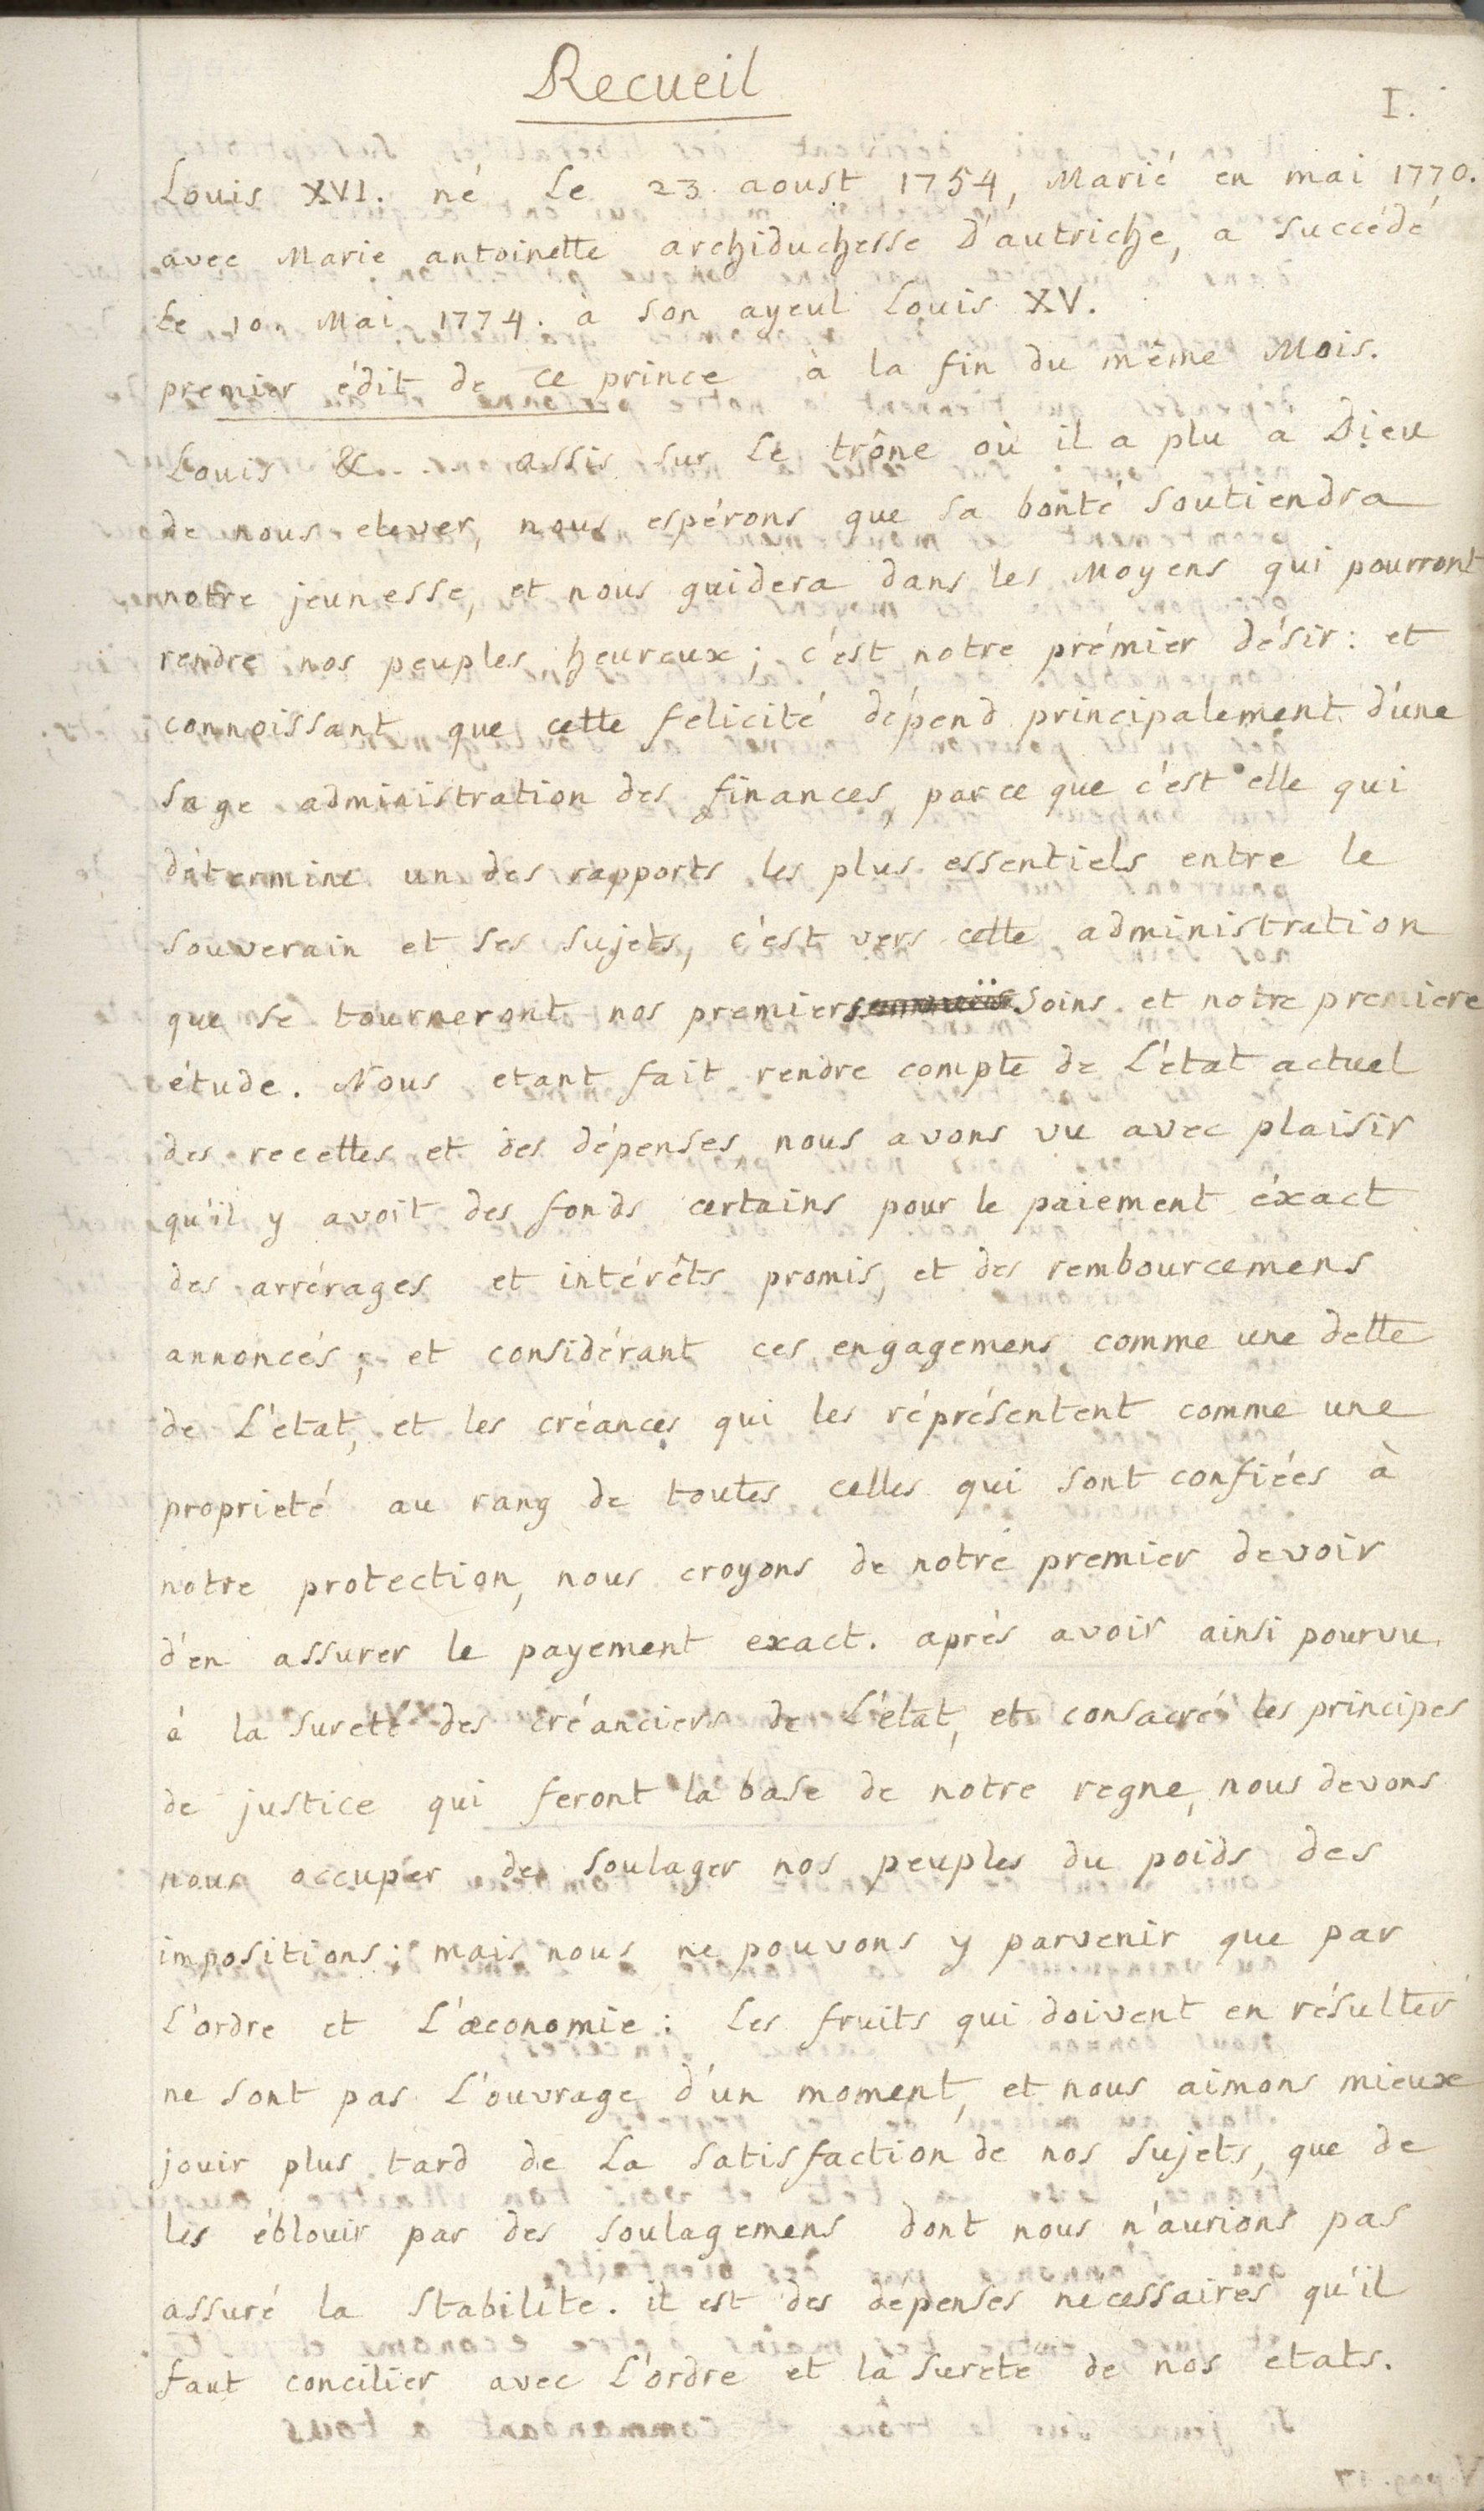 Recueil
I.
Louis XVI. né le 23 aoust 1754, Marié en mai 1770.
avec Marie antoinette archiduchesse d'autriche, a succédé
le 10. Mai 1774. à son ayeul Louis XV.
premier édit de ce prince à la fin du même Mois.
Louis &c... assis sur le trône où il a plu a Dieu
de nous elever, nous espérons que sa bonté soutiendra
notre jeunesse, et nous guidera dans les Moyens qui pourront
rendre nos peuples heureux; c'est notre prémier désir: et
connoissant que cette felicité dépend principalement d'une
sage administration des finances, parce que c'est elle qui
détermine un des rapports les plus essentiels entre le
souverain et ses sujets, c'est vers cette administration
que se tourneront nos premiers soins et notre premiere
étude. Nous etant fait rendre compte de L'état actuel
des recettes et des dépenses, nous avons vu avec plaisir
qu'il y avoit des fonds certains pour le paiement éxact
des arrérages et intérêts promis, et des rembourcemens
annoncés; et considérant ces engagemens comme une dette
de L'etat, et les créances qui les réprésentent comme une
proprieté au rang de toutes celles qui sont confiées à
notre protection, nous croyons de notre premier devoir
d'en assurer le payement exact. aprés avoir ainsi pourvu
à la sureté des créanciers de L'état, et consacré les principes
de justice qui feront la base de notre regne, nous devons
nous occuper de soulager nos peuples du poids des
impositions; mais nous ne pouvons y parvenir que par
L'ordre et L'œconomie: Les fruits qui doivent en résulter
ne sont pas L'ouvrage d'un moment, et nous aimons mieux
jouir plus tard de La satisfaction de nos sujets, que de
les éblouir par des soulagemens dont nous n'aurions pas
assuré la stabilité. il est des dépenses nécessaires qu'il
faut concilier avec L'ordre et la sureté de nos etats.